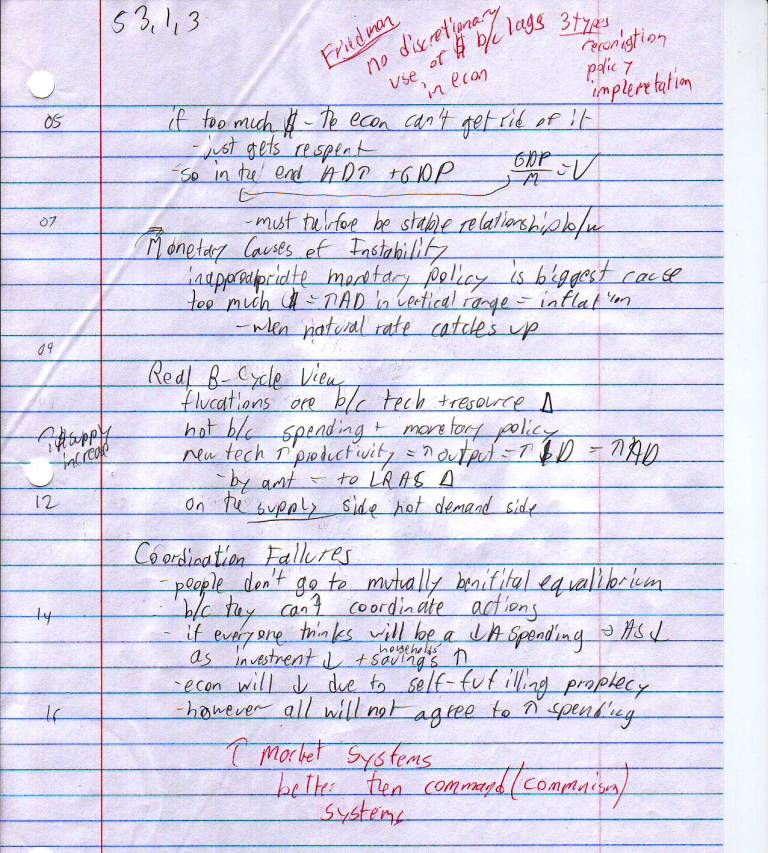 53,1,3
Friedman
no discretionary
use of $ b/c lags
in econ
3 types
reconigtion
policy
implemetation
05
if too much $ - te econ can't get rid of it
- just gets respent
- so in the end AD↑ + GDP GDP/M = V
07
- must thirfore be stable relationship b/w
Monetary Causes of Instability
monetary policy is biggest cause
too much $ = ↑AD in vertical range = inflation
- when natural rate catches up
09
Real B-Cycle View
fluctations are b/c tech + resource Δ
not b/c spending + monetary policy
$ supply
increase
new tech ↑ productivity = ↑ output = ↑ $D = ↑ AD
- by amt = to LRAS Δ
12
on the supply side not demand side
Coordination Failures
- people don't go to mutually benifital equalibrium
14
b/c they can't coordinate actions
- if everyone thinks will be a ↓ A spending → AS↓
as investment ↓ + households savings ↑
- econ will ↓ due to self-fufilling prophecy
16
- however all will not agree to ↑ spending
↑ market systems
better then command (commnism)
systems